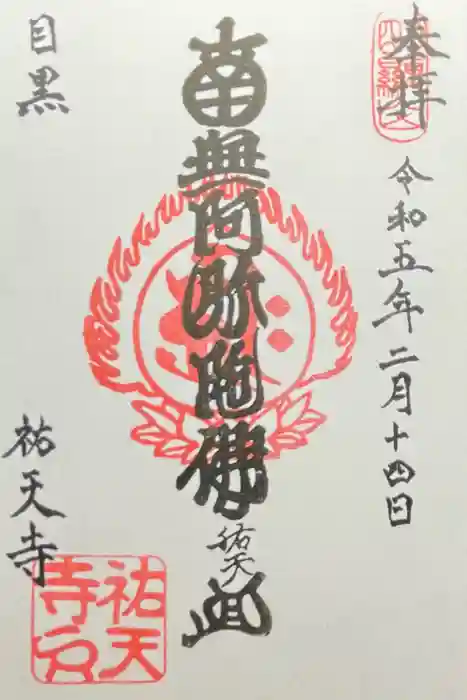 奉拝
令和五年二月十四日
南無阿弥陀佛
祐天
目黒
祐天寺
祐天
寺